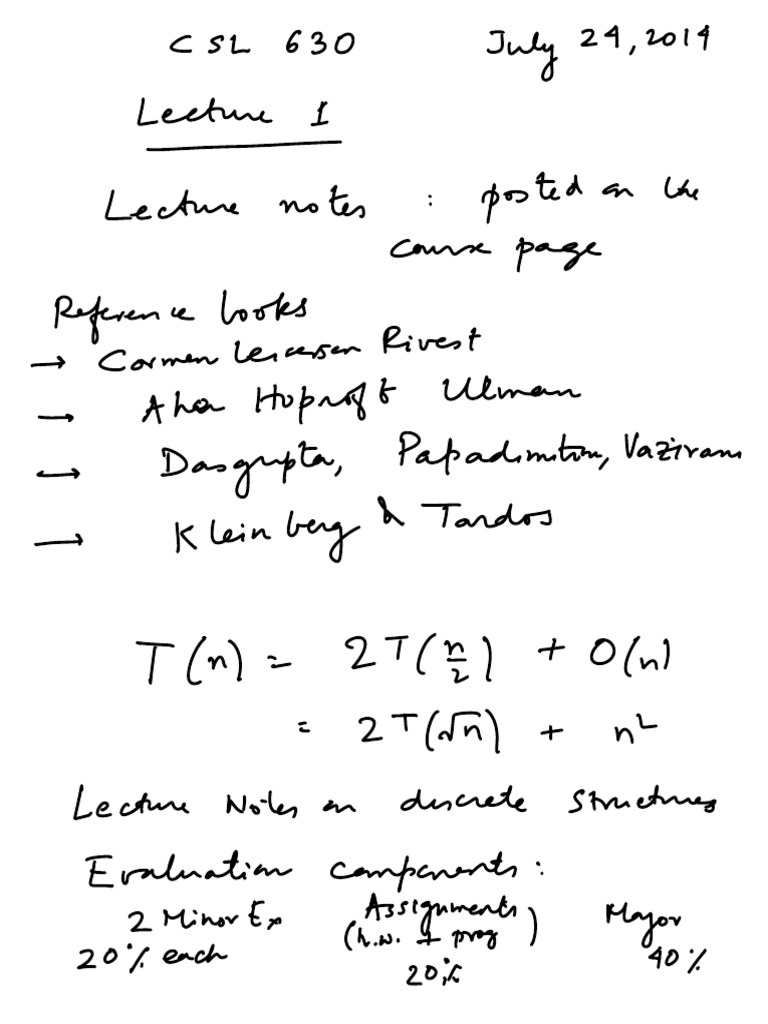 CSL 630 July 24, 2014
Lecture 1
Lecture notes : posted on the
course page
Reference books
→ Cormen Leiserson Rivest
→ Aho Hopcroft Ulman
→ Dasgupta, Papadimitriou, Vazirani
→ Kleinberg & Tardos
T(n) = 2T(n/2) + O(n)
= 2T(√n) + n²
Lecture Notes on discrete structures
Evaluation components:
2 Minor Ex Assignments Major
20% each (h.w. + prog) 40%
20%